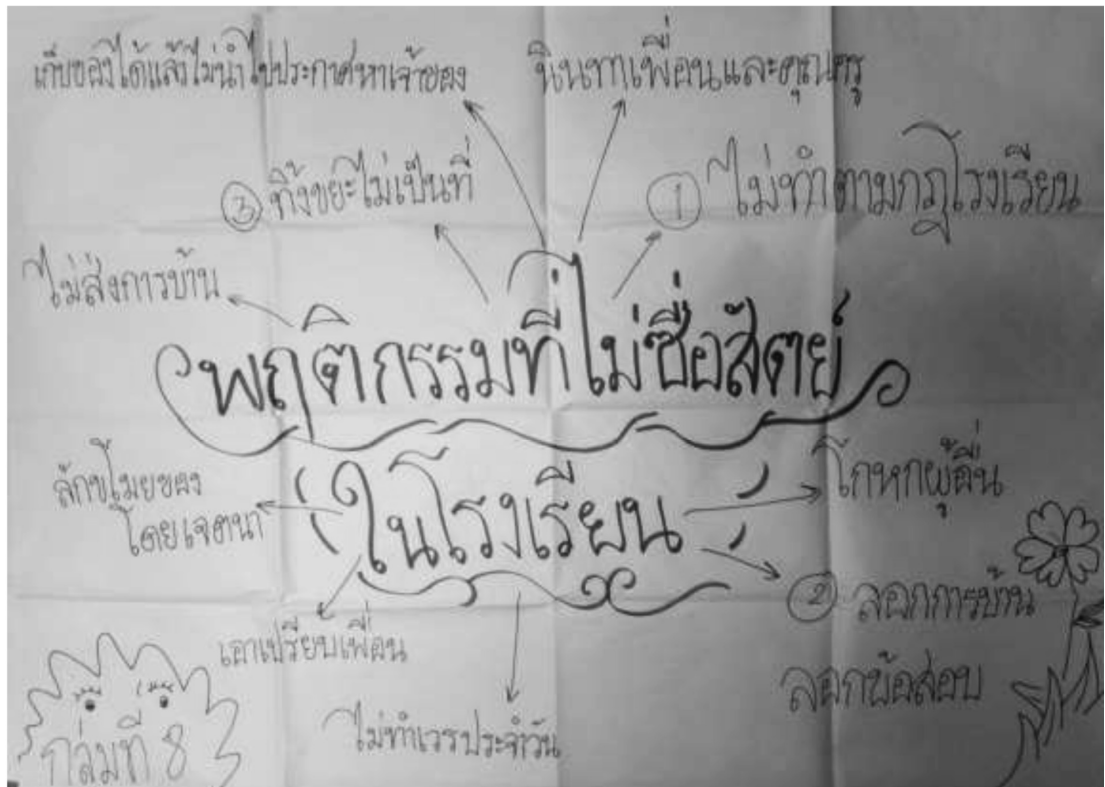 เก็บของได้แล้วไม่นำไปประกาศหาเจ้าของ
นินทาเพื่อนและคุณครู
③ ทิ้งขยะไม่เป็นที่
① ไม่ทำตามกฎโรงเรียน
ไม่ส่งการบ้าน
พฤติกรรมที่ไม่ซื่อสัตย์
ในโรงเรียน
ลักขโมยของ
โดยเจตนา
โกหกผู้อื่น
② ลอกการบ้าน
ลอกข้อสอบ
เอาเปรียบเพื่อน
ไม่ทำเวรประจำวัน
กลุ่มที่ 8